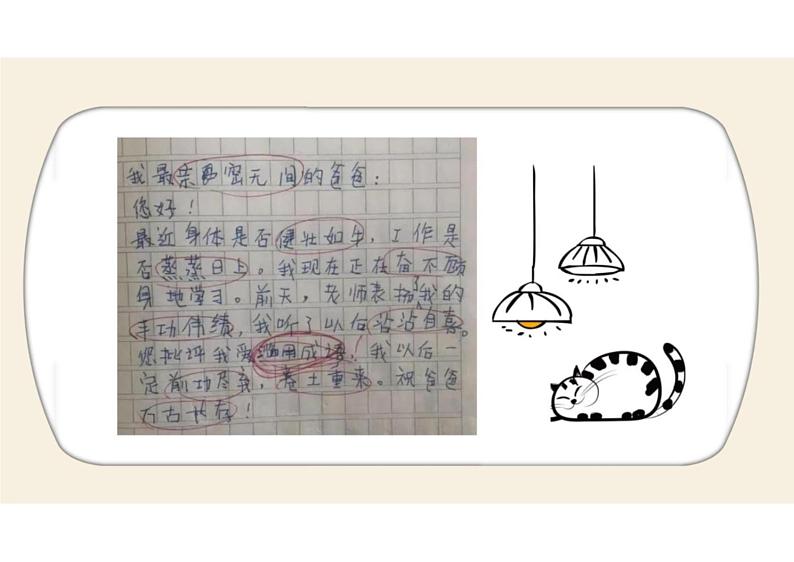 我最亲密无间的爸爸：
您好！
最近身体是否健壮如牛，工作是
否蒸蒸日上。我现在正在奋不顾
身地学习。前天，老师表扬了我的
丰功伟绩，我听了以后沾沾自喜。
您批评我爱滥用成语，我以后一
定前功尽弃，卷土重来。祝爸爸
万古长存！